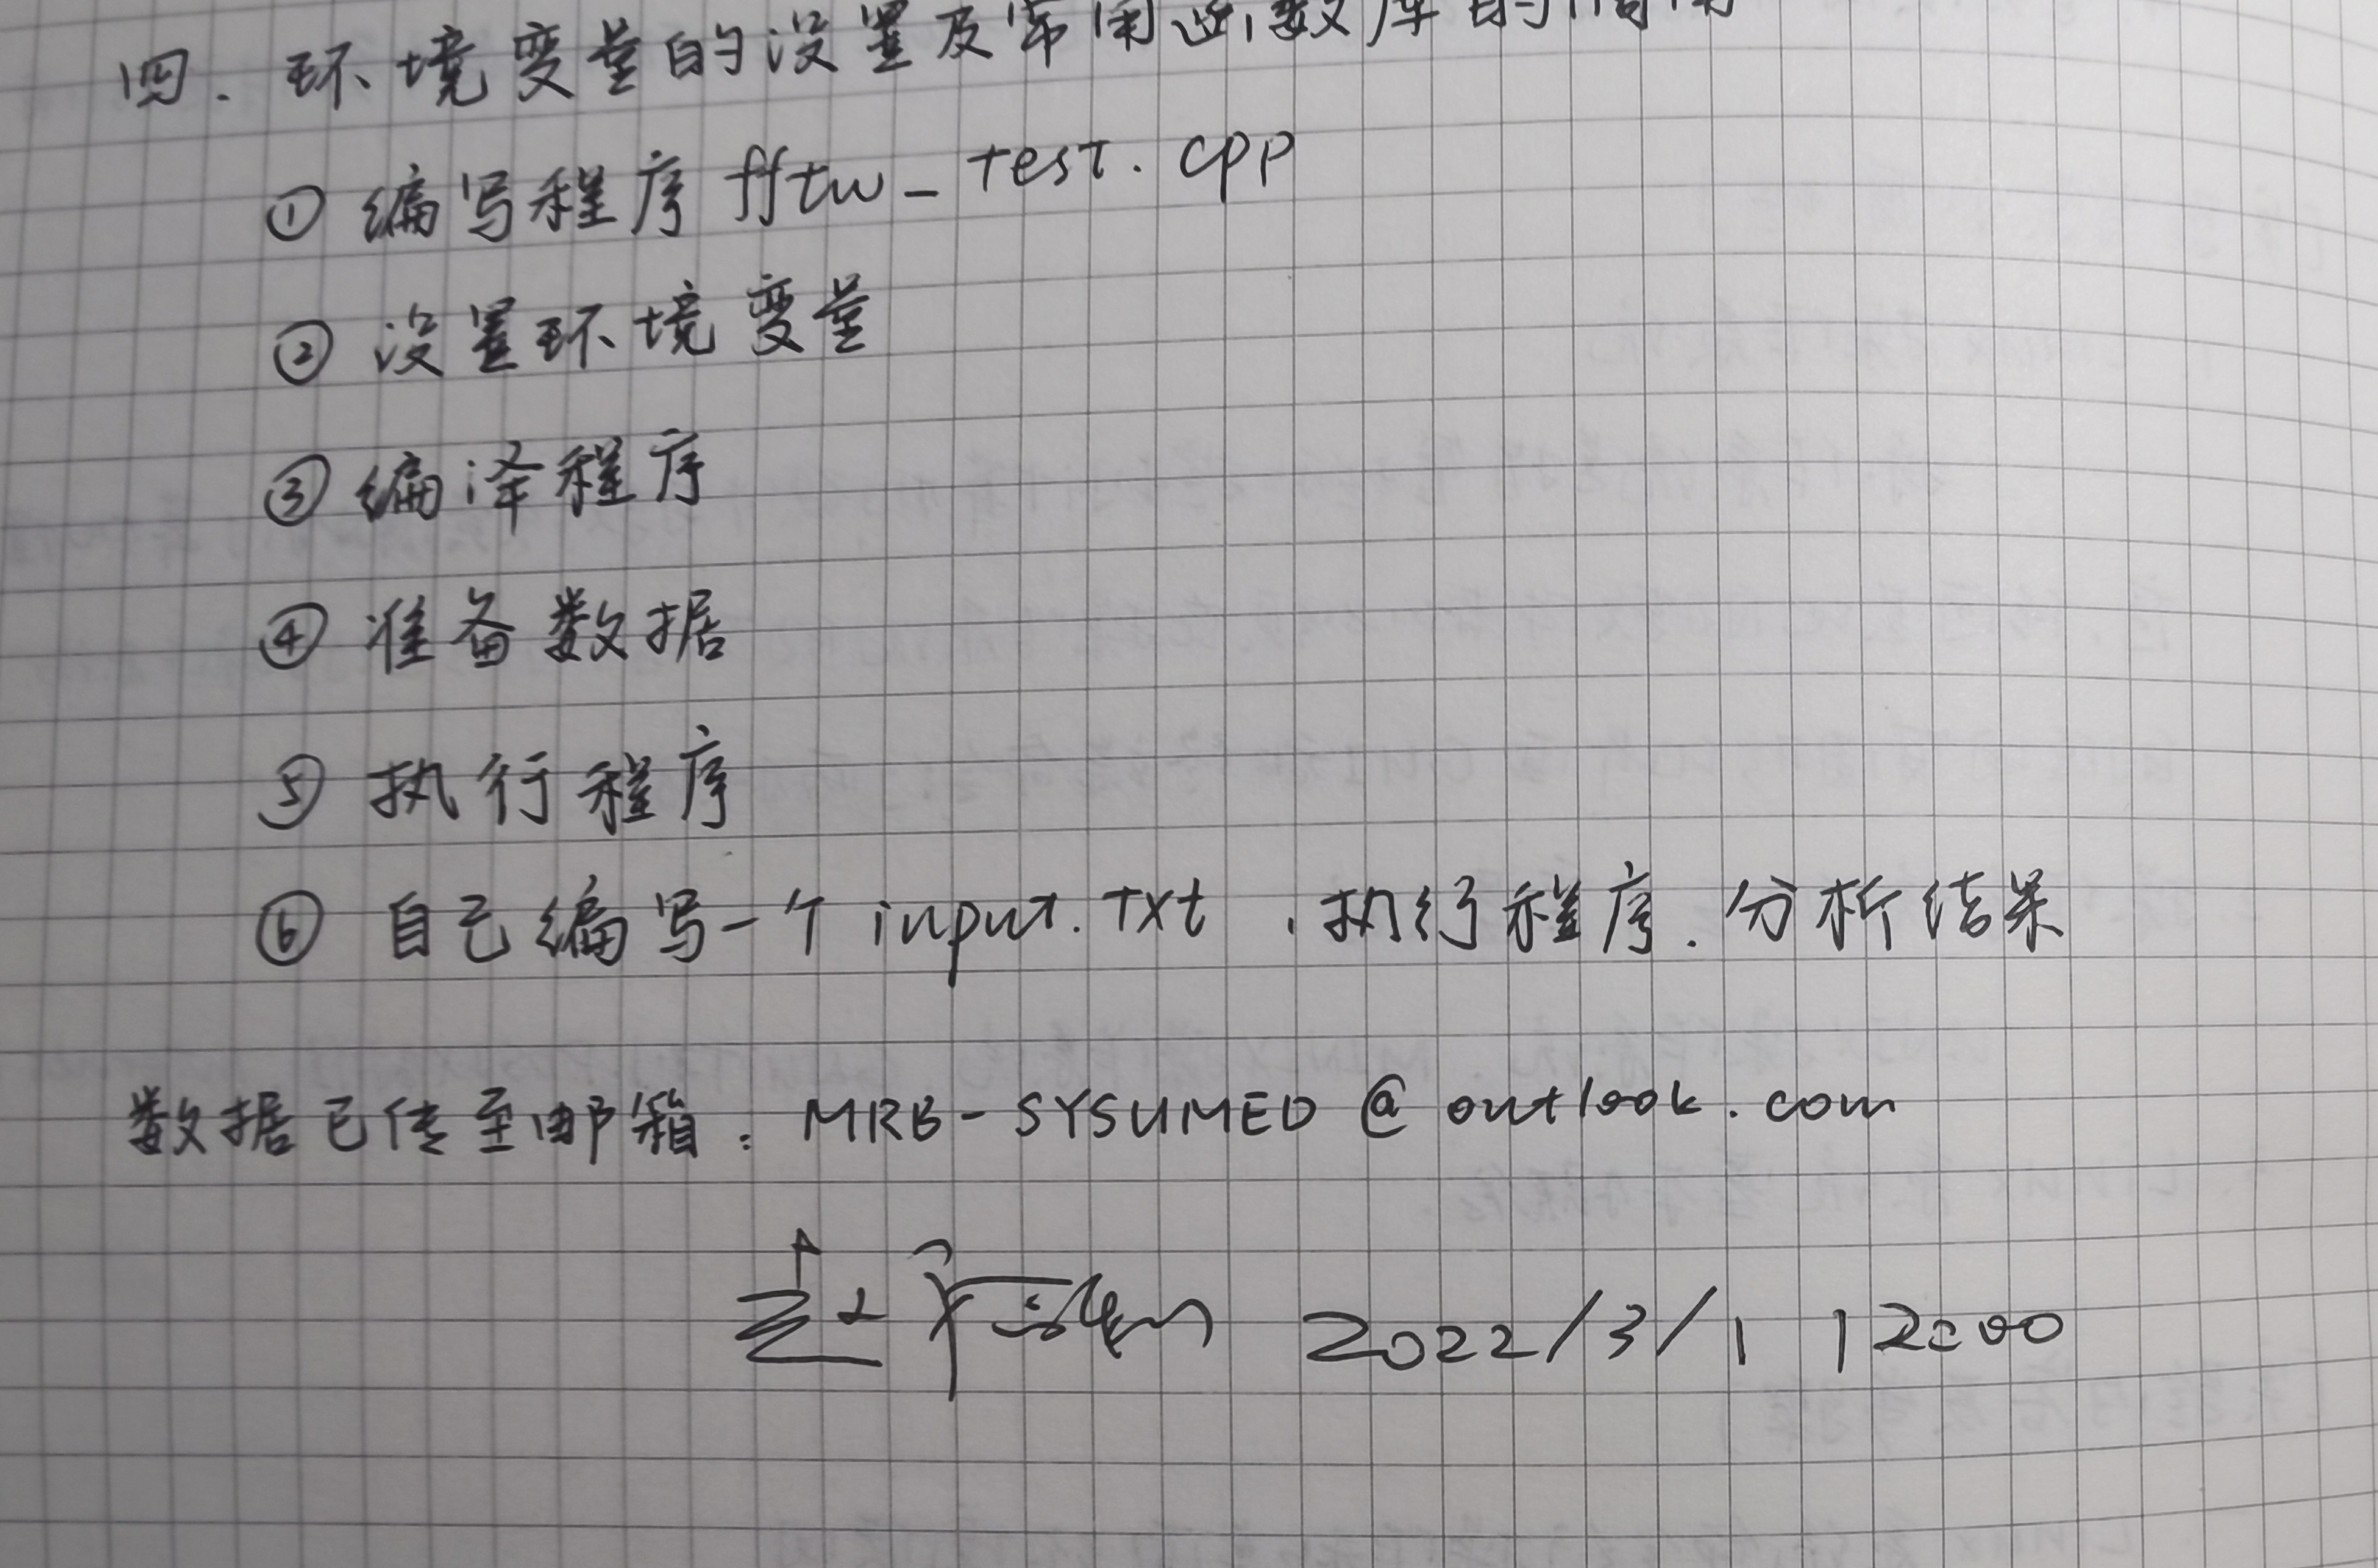 四. 环境变量的设置及常用函数库的调用
① 编写程序 fftw_test.cpp
② 设置环境变量
③ 编译程序
④ 准备数据
⑤ 执行程序
⑥ 自己编写一个 input.txt, 执行程序. 分析结果
数据已传至邮箱: MRB-SYSUMED@outlook.com
2022/3/1 12:00